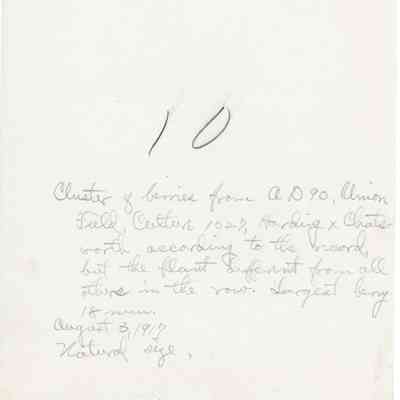 10
Cluster of berries from A D 90, Union
Field, Culture 1027, Harding x Chats-
worth according to the record,
but the plant different from all
others in the row. Largest berry
18 mm.
August 3, 1917
Natural size.